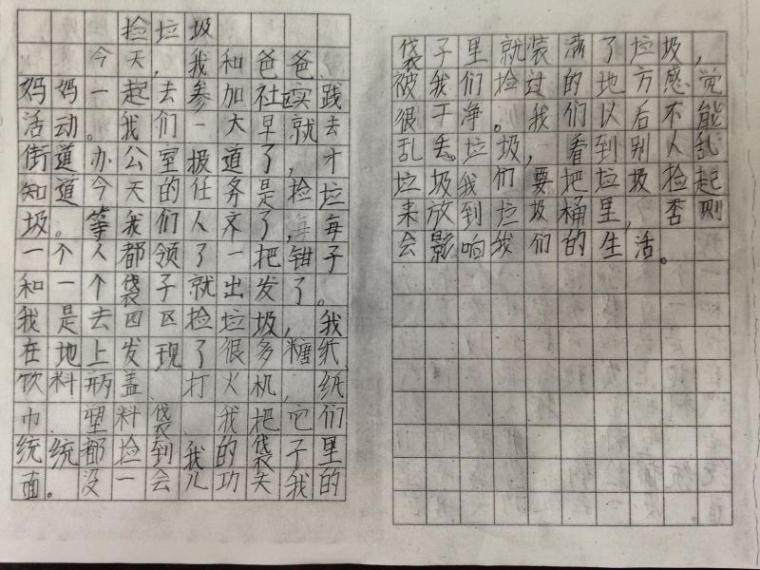 捡垃圾
今天，我和爸爸、
妈妈一起去参加社区实践
活动。我们一大早就去
街道办公室报道了，才
知道今天的任务是捡垃
圾。等我们人齐了，每
一个人都领了一把钳子
和一个袋子就出发了。
我是去四区捡垃圾，我
在地上发现了很多糖纸、
饮料瓶盖、打火机，纸
巾、塑料袋、我把它们
统统都捡到我的袋子里
面。没一会儿功夫我的
袋子里就装满了垃圾，
被我们捡过的地方感觉
很干净。我们以后不能
乱丢垃圾，看到别人乱
垃圾我们要把垃圾捡起
来放到垃圾桶里，否则
会影响我们的生活。